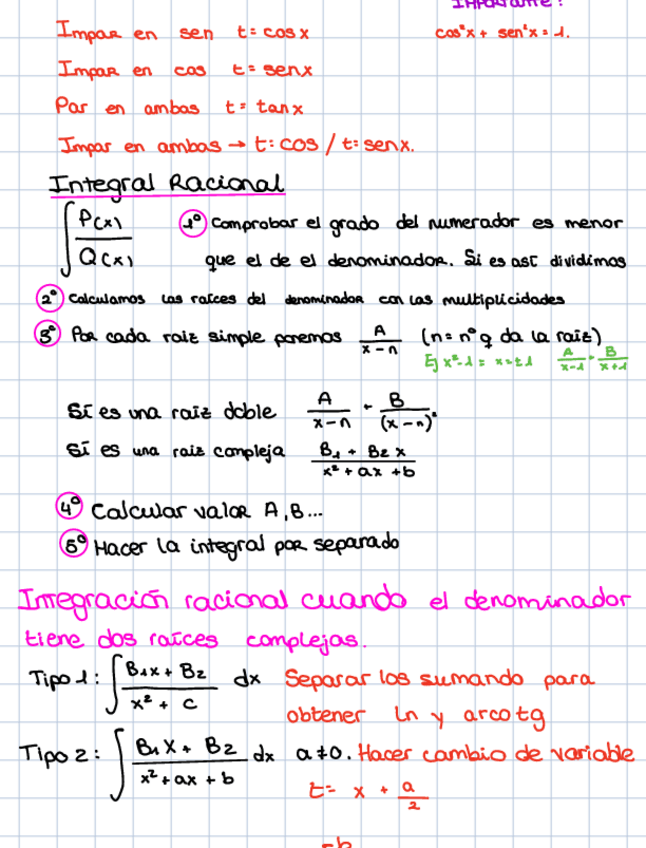 Importante!
Impar en sen t = cos x cos²x + sen²x = 1.
Impar en cos t = sen x
Par en ambas t = tan x
Impar en ambas → t: cos / t: sen x.
Integral Racional
∫ P(x) / Q(x) 1º Comprobar el grado del numerador es menor
que el de el denominador. Si es así dividimos
2º Calculamos las raíces del denominador con las multiplicidades
3º Por cada raíz simple ponemos A / x-n (n = nº q da la raíz)
Ej x²-1 = x=±1 A / x-1 + B / x+1
Si es una raíz doble A / x-n + B / (x-n)²
Si es una raíz compleja B1 + B2 x / x² + ax + b
4º Calcular valor A, B...
5º Hacer la integral por separado
Integración racional cuando el denominador
tiene dos raíces complejas.
Tipo 1: ∫ B1x + B2 / x² + c dx Separar los sumando para
obtener ln y arcotg
Tipo 2: ∫ B1 x + B2 / x² + ax + b dx a ≠ 0. Hacer cambio de variable
t = x + a / 2
-b